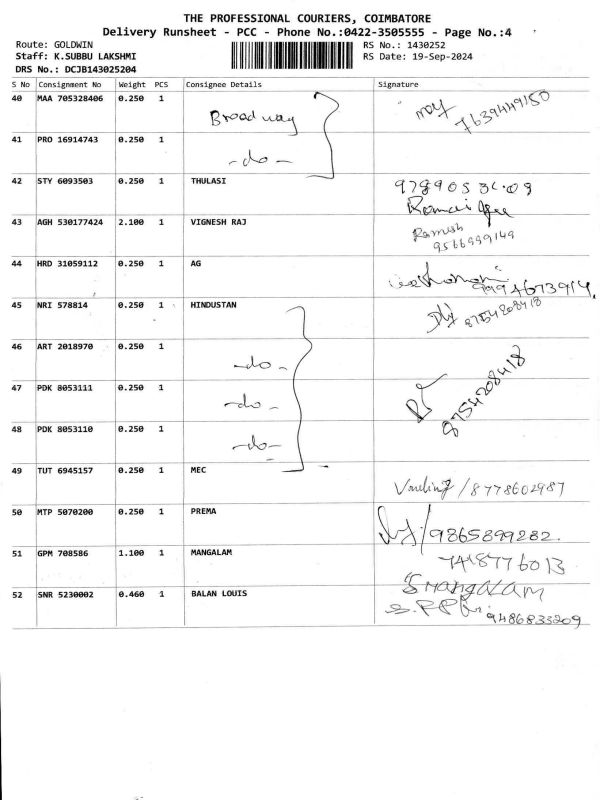 THE PROFESSIONAL COURIERS, COIMBATORE
Delivery Runsheet - PCC - Phone No.:0422-3505555 - Page No.:4
Route: GOLDWIN
RS No.: 1430252
Staff: K.SUBBU LAKSHMI
RS Date: 19-Sep-2024
DRS No.: DCJB143025204
S No Consignment No Weight PCS Consignee Details Signature
40 MAA 705328406 0.250 1 Broadway 7639449150
41 PRO 16914743 0.250 1 -do-
42 STY 6093503 0.250 1 THULASI
43 AGH 530177424 2.100 1 VIGNESH RAJ Ramesh
9566999149
44 HRD 31059112 0.250 1 AG 9994673914.
45 NRI 578814 0.250 1 HINDUSTAN 8754208418
46 ART 2018970 0.250 1 -do-
47 PDK 8053111 0.250 1 -do- 8754208418
48 PDK 8053110 0.250 1 -do-
49 TUT 6945157 0.250 1 MEC /8778602987
50 MTP 5070200 0.250 1 PREMA /9865899282.
51 GPM 708586 1.100 1 MANGALAM 7418776013
52 SNR 5230002 0.460 1 BALAN LOUIS 9486833209